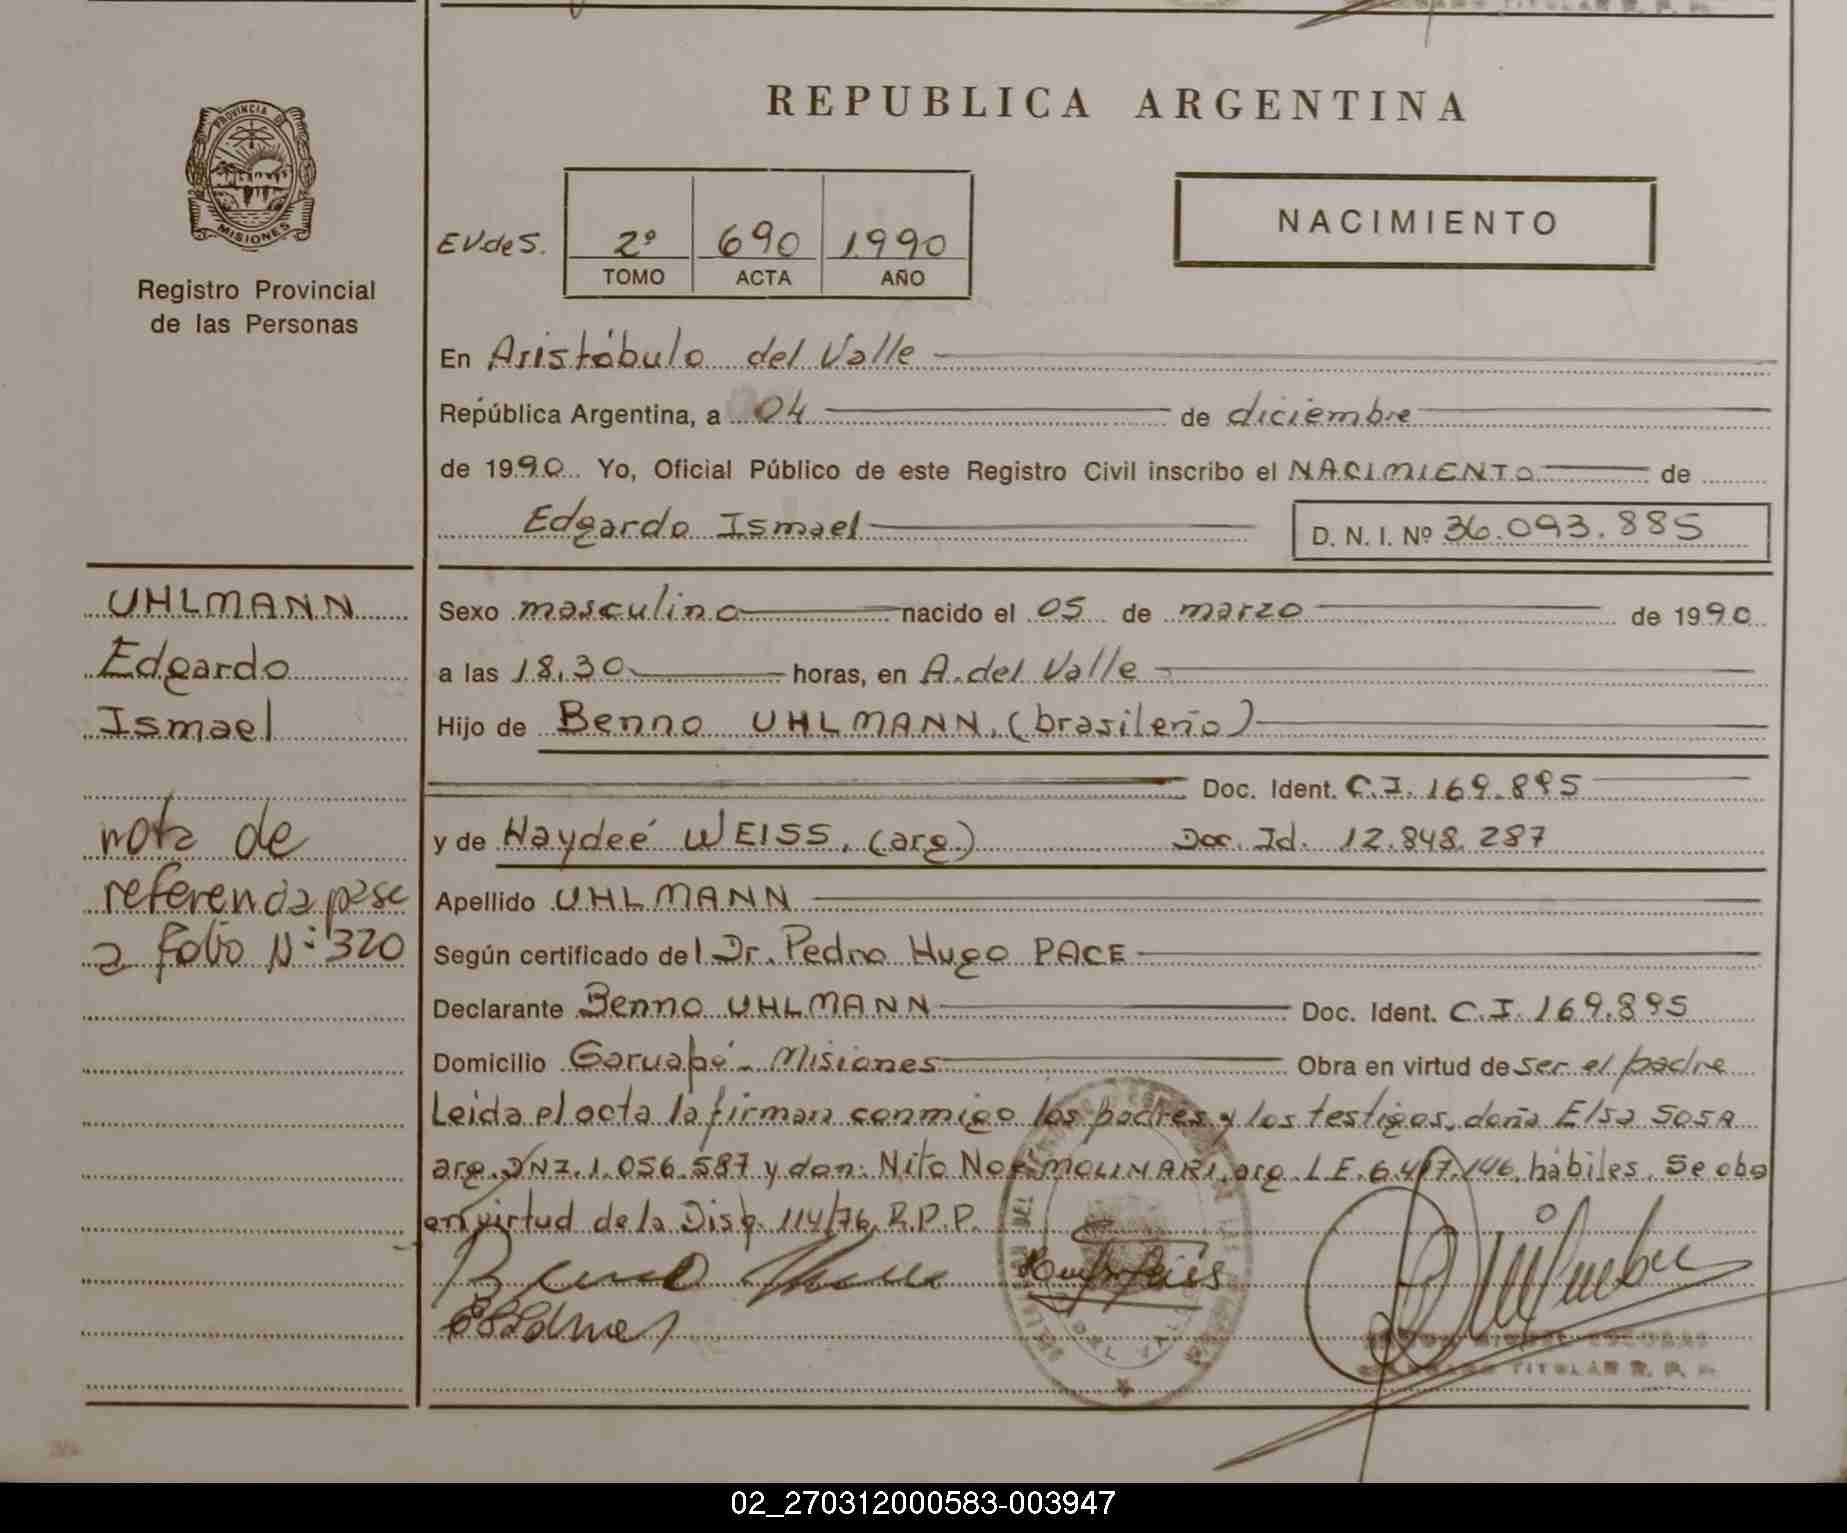 REPUBLICA ARGENTINA
PROVINCIA DE
MISIONES
Registro Provincial
de las Personas
EVdeS.
2º 690 1990
TOMO ACTA AÑO
NACIMIENTO
En Aristóbulo del Valle
República Argentina, a 04 de diciembre
de 1990 Yo, Oficial Público de este Registro Civil inscribo el NACIMIENTO de
Edgardo Ismael
D. N. I. Nº 36.093.885
UHLMANN
Edgardo
Ismael
nota de
referencia pase
a folio Nº 320
Sexo masculino nacido el 05 de marzo de 1990
a las 18,30 horas, en A. del Valle
Hijo de Benno UHLMANN, (brasileño)
Doc. Ident. C.I. 169.895
y de Haydeé WEISS, (arg.) Doc. Id. 12.848.287
Apellido UHLMANN
Según certificado del Dr. Pedro Hugo PACE
Declarante Benno UHLMANN Doc. Ident. C.I. 169.895
Domicilio Garuapé - Misiones Obra en virtud de ser el padre
Leida el acta la firman conmigo los padres y los testigos, doña Elsa SOSA
arg. DNI. 1.056.587 y don: Nito Noe MOLINARI, arg. L.E. 6.417.146, hábiles. Se obo
en virtud de la Disp. 114/76 R.P.P.
TITULAR R. P. P.
02_270312000583-003947